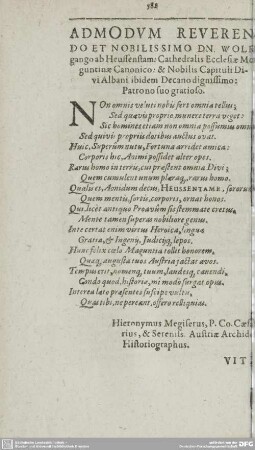 ADMODVM REVEREN
DO ET NOBILISSIMO DN. WOLF
gango ab Heussenstam: Cathedralis Ecclesiæ Mo
guntinæ Canonico: & Nobilis Capituli Di
vi Albani ibidem Decano dignissimo:
Patrono suo gratioso.
NOn omnis venti nobis fert omnia tellus;
Sed quævis proprio munere terra viget:
Sic homines etiam non omnia possumus omnes
Sed quivis propriis dotibus auctus ovat.
Huic, Superûm nutu, Fortuna arridet amica:
Corporis hic, Animi possidet alter opes.
Rarus homo in terris, cui præstent omnia Divi;
Quem cumulent unum pleraq;, rarus homo.
Qualu es, Aonidum decus, HEUSSENTAME, sororum
Quem mentis, sortis, corporis, ornat honos.
Qui, licèt antiquo Proavûm sis stemmate cretus,
Mente tamen superas nobiliore genus.
Inte certat enim virtus Heroica, lingua
Gratia, & Ingenii, Judiciiq; lepos.
Hunc felix cœlo Maguntia tollit honorem,
Quaq; angusta tuos Austria jactat avos.
Tempus erit, nomenq; tuum, laudesq; canendi,
Cando quod, historia, mi modò surgat opus.
Interea læto præsentes suscipe vultu,
Quas tibi, ne pereant, offero relliquias.
Hieronymus Megiserus, P. Co. Cæsa
rius, & Sereniss. Austriæ Archid
Historiographus.
VIT